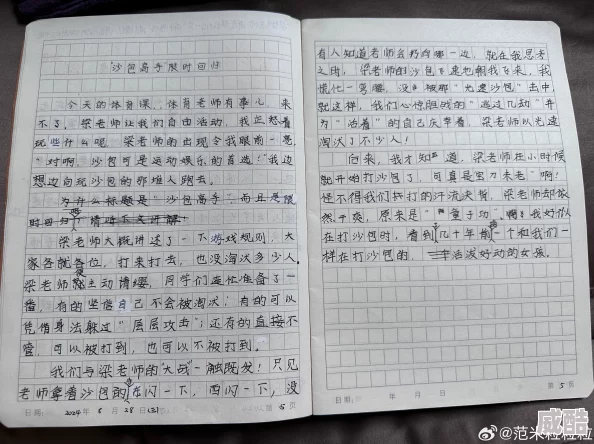 沙包高手限时回归
今天的体育课,体育老师有事儿,来
不了,梁老师让我们自由活动,我正愁着
玩些什么呢,梁老师的出现令我眼前一亮,
“对啊,沙包可是运动娱乐的首选!”我边
想边向玩沙包的那堆人跑去。
为什么标题是“沙包高手”,而且是限
时回归?请听下文讲解
梁老师大概讲述了一下游戏规则,大
家各就各位,打来打去,也没淘汰多少人。
梁老师就主动请缨,同学们连忙准备了一
番,有的坚信自己不会被淘汰;有的可以
凭借身法躲过“层层攻击”;还有的直接不
管,可以被打到,也可以不被打到。
我们与梁老师的“大战”一触既发!只见
老师拿着沙包的在闪一下,西闪一下,没
日期: 2024年6月28日(五) 第5页
有人知道老师会扔向哪一边,就在我思考
之时,梁老师的沙包飞速地朝我飞来,我
慌忙一弯腰,没被那“光速沙包”击中
就这样,我们心惊胆战的“逃过几劫”并
为“活着”的自己庆幸着,梁老师以光速
淘汰了不少人!
后来,我才知道,梁老师在小时候
就开始打沙包了,可真是宝刀未老”啊!
怪不得我们打的汗流浃背,梁老师却依
然干爽,原来是“童子功”啊!我好似
在打沙包时,看到几十年前一个和我们一
样在打沙包的,活泼好动的女孩。
年 月 日 第5页
@范米粒粒粒
威酷